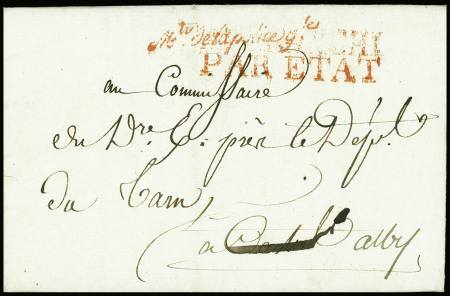 Mtre de la police gle
AFFRANCHI
PAR ETAT
au Commissaire
du Dre E. près le Dépt.
du Tarn
à alby